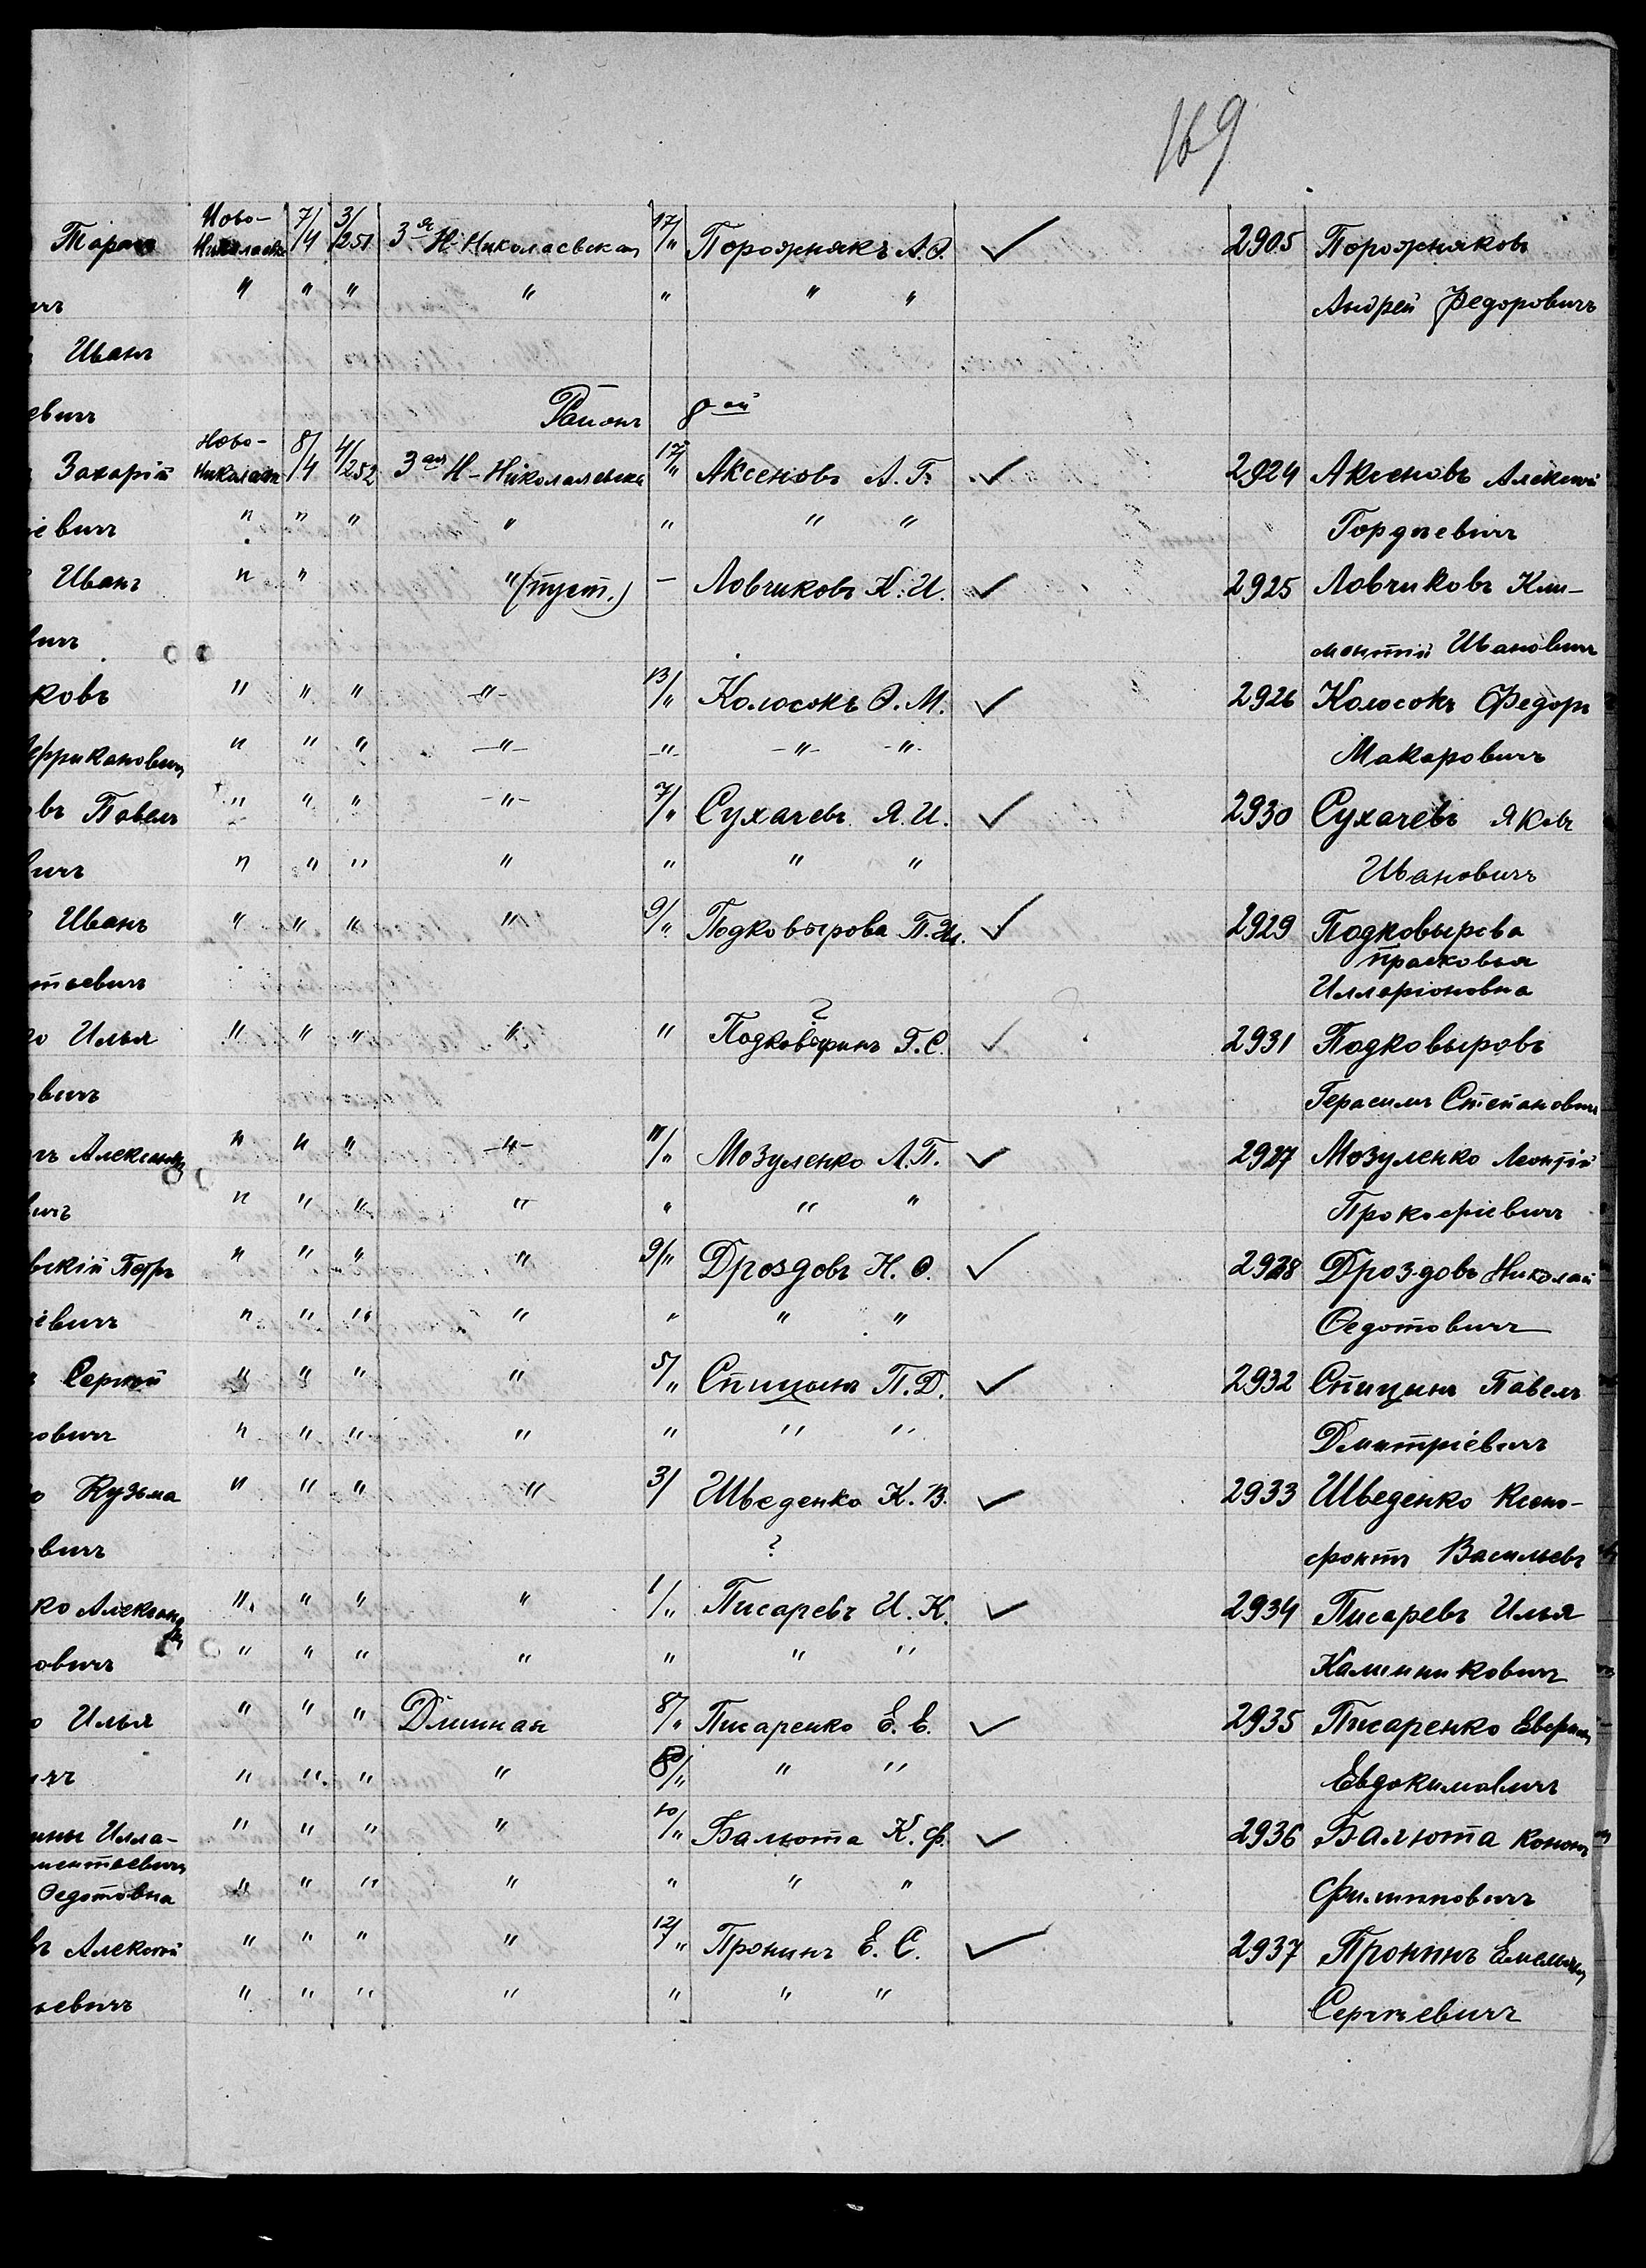 169
Ново-
Тарас Николаевск 7/4 3/251 3я Н-Николаевская 17/" Порожнякъ А.Ѳ. ✓ 2905 Порожняковъ
ичъ " " " " " " " Андрей Федоровичъ
Иванъ
евичъ Районъ 8ой
Ново-
Захарій Николаевск 8/4 4/252 3ая Н-Николаевская 17/" Аксеновъ А.Г. ✓ 2924 Аксеновъ Алексѣй
іевичъ " " " " " " " Гордѣевичъ
Иванъ " " " (пуст.) - Ловчиковъ К.И. ✓ 2925 Ловчиковъ Кли-
вичъ ментій Ивановичъ
ковъ " " " -"- 13/" Колосокъ Ѳ.М. ✓ 2926 Колосокъ Федоръ
Аффрикановичъ " " " -"- -"- -"- -"- Макаровичъ
въ Павелъ " " " -"- 7/" Сухачевъ Я.И. ✓ 2930 Сухачевъ Яковъ
вичъ " " " " " " " Ивановичъ
Иванъ " " " " 9/" Подковырова П.Ил. ✓ 2929 Подковырова
Прасковья
тьевичъ Илларіоновна
?
о Илья " " " " " Подковыринъ Г.С. ✓ 2931 Подковыровъ
овичъ Герасимъ Степановичъ
чъ Александръ " " " -"- 11/" Мозуленко Л.П. ✓ 2927 Мозуленко Леонтій
ичъ " " " " " " " Прокофіевичъ
вскій Петръ " " " " 9/" Дроздовъ Н.Ѳ. ✓ 2928 Дроздовъ Николай
іевичъ " " " " " " " Ѳедотовичъ
Сергѣй " " " " 5/" Спицынъ П.Д. ✓ 2932 Спицынъ Павелъ
овичъ " " " " " " " Дмитріевичъ
о Кузьма " " " " 3/ Шведенко К.В. ✓ 2933 Шведенко Ксено-
овичъ ? фонтъ Васильевъ
ко Александръ " " " " 1/" Писаревъ И.К. ✓ 2934 Писаревъ Илья
овичъ " " " " " " " Калинниковичъ
о Илья " " " Длинная 8/" Писаренко Е.Е. ✓ 2935 Писаренко Евфимъ
ичъ " " " " 8/" " " Евдокимовичъ
ины Илла- " " " " 10/" Балюта К.Ф. ✓ 2936 Балюта Кононъ
ментьевичъ
Ѳедотовна " " " " " " " Филипповичъ
въ Алексѣй " " " " 12/" Пронинъ Е.С. ✓ 2937 Пронинъ Емельянъ
ьевичъ " " " " " " " Сергѣевичъ